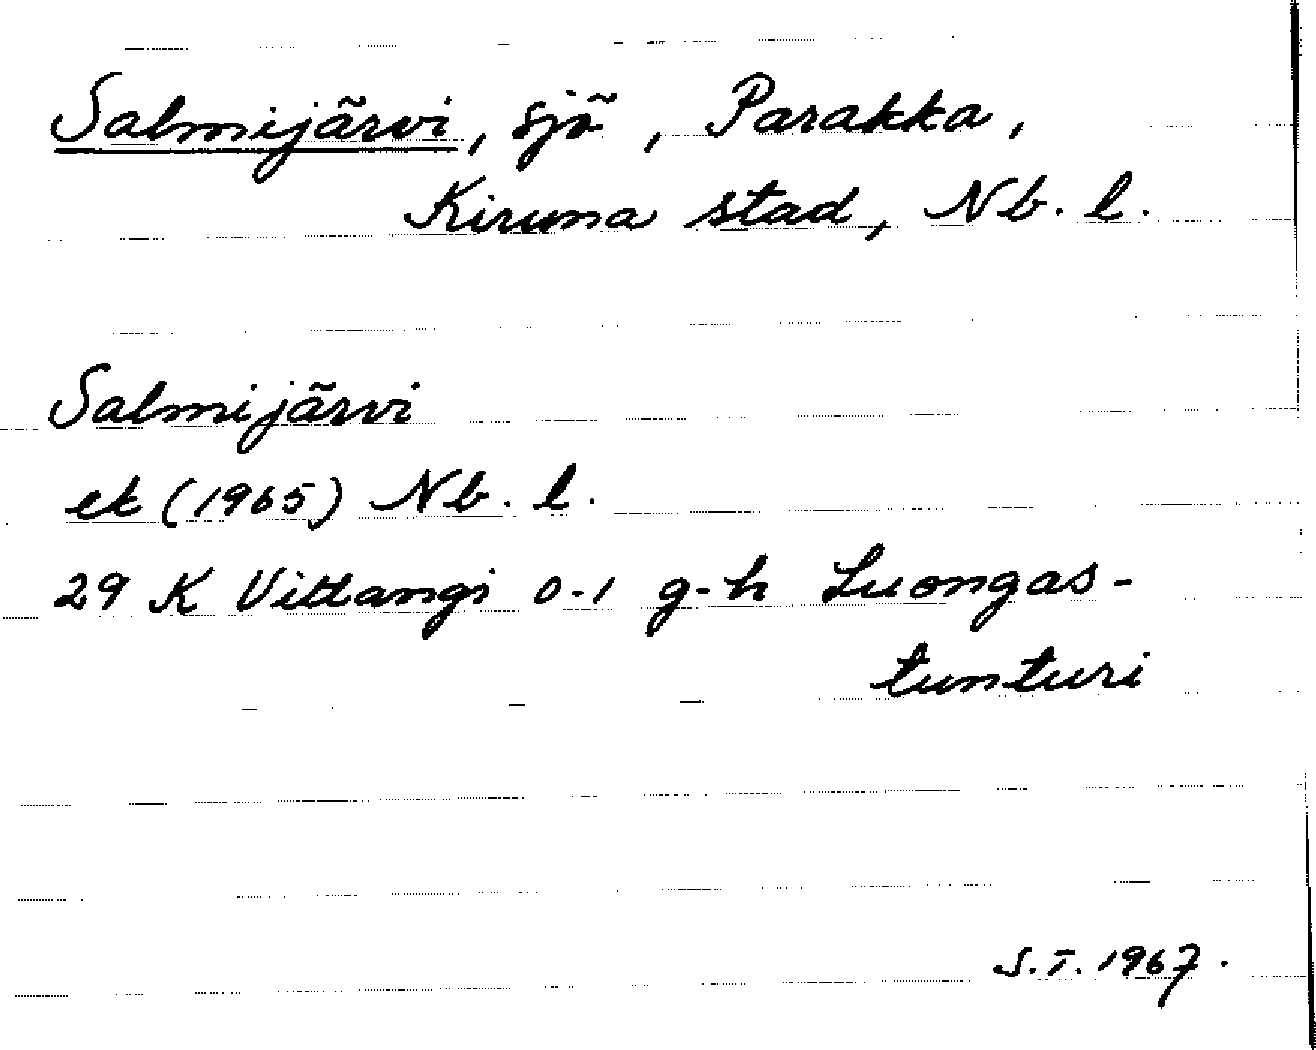 Salmijärvi, sjö, Parakka,
Kiruna stad, Nb. l.
Salmijärvi
ek (1965) Nb. l.
29 K Vittangi 0-1 g-h Luongas-
tunturi
S.T. 1967.